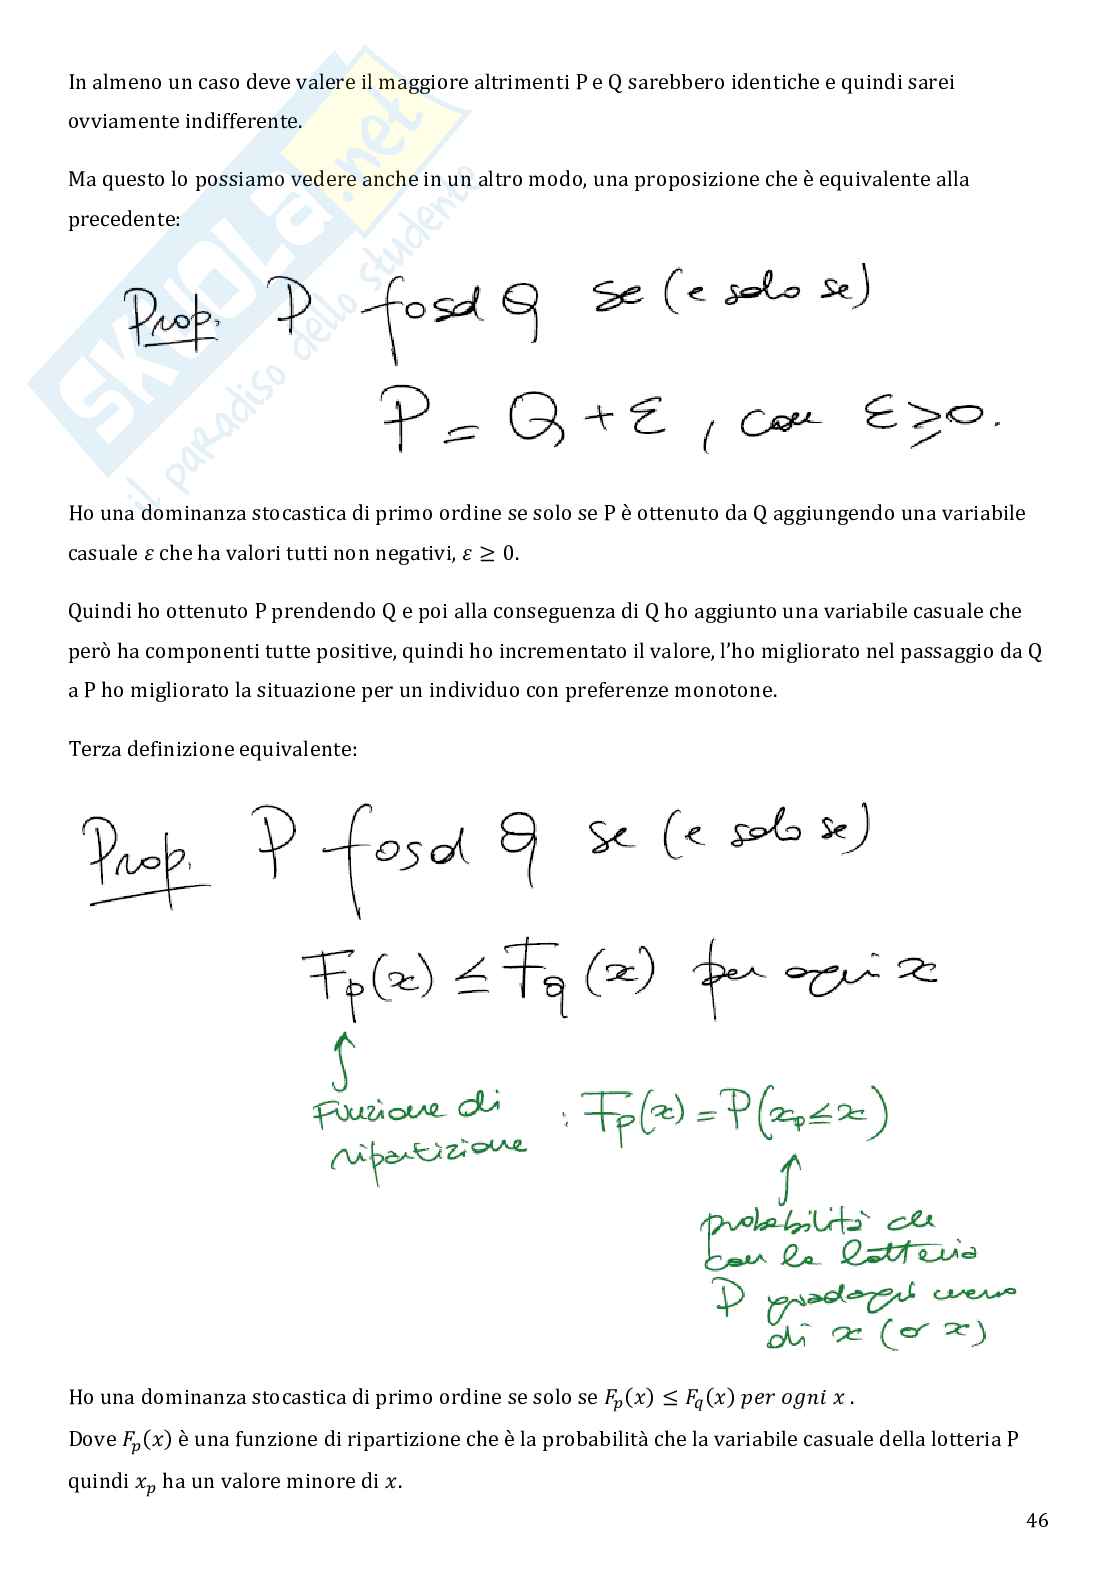 In almeno un caso deve valere il maggiore altrimenti P e Q sarebbero identiche e quindi sarei
ovviamente indifferente.
Ma questo lo possiamo vedere anche in un altro modo, una proposizione che è equivalente alla
precedente:
SKUOLA.net
il paradiso dello studente
Prop. P fosd Q se (e solo se)
P = Q + ε, con ε ≥ 0.
Ho una dominanza stocastica di primo ordine se solo se P è ottenuto da Q aggiungendo una variabile
casuale ε che ha valori tutti non negativi, ε ≥ 0.
Quindi ho ottenuto P prendendo Q e poi alla conseguenza di Q ho aggiunto una variabile casuale che
però ha componenti tutte positive, quindi ho incrementato il valore, l’ho migliorato nel passaggio da Q
a P ho migliorato la situazione per un individuo con preferenze monotone.
Terza definizione equivalente:
Prop. P fosd Q se (e solo se)
Fp(x) ≤ Fq(x) per ogni x
Funzione di : Fp(x) = P(xp ≤ x)
ripartizione
probabilità che
con la lotteria
P guadagni meno
di x (o x)
Ho una dominanza stocastica di primo ordine se solo se Fp(x) ≤ Fq(x) per ogni x .
Dove Fp(x) è una funzione di ripartizione che è la probabilità che la variabile casuale della lotteria P
quindi xp ha un valore minore di x.
46